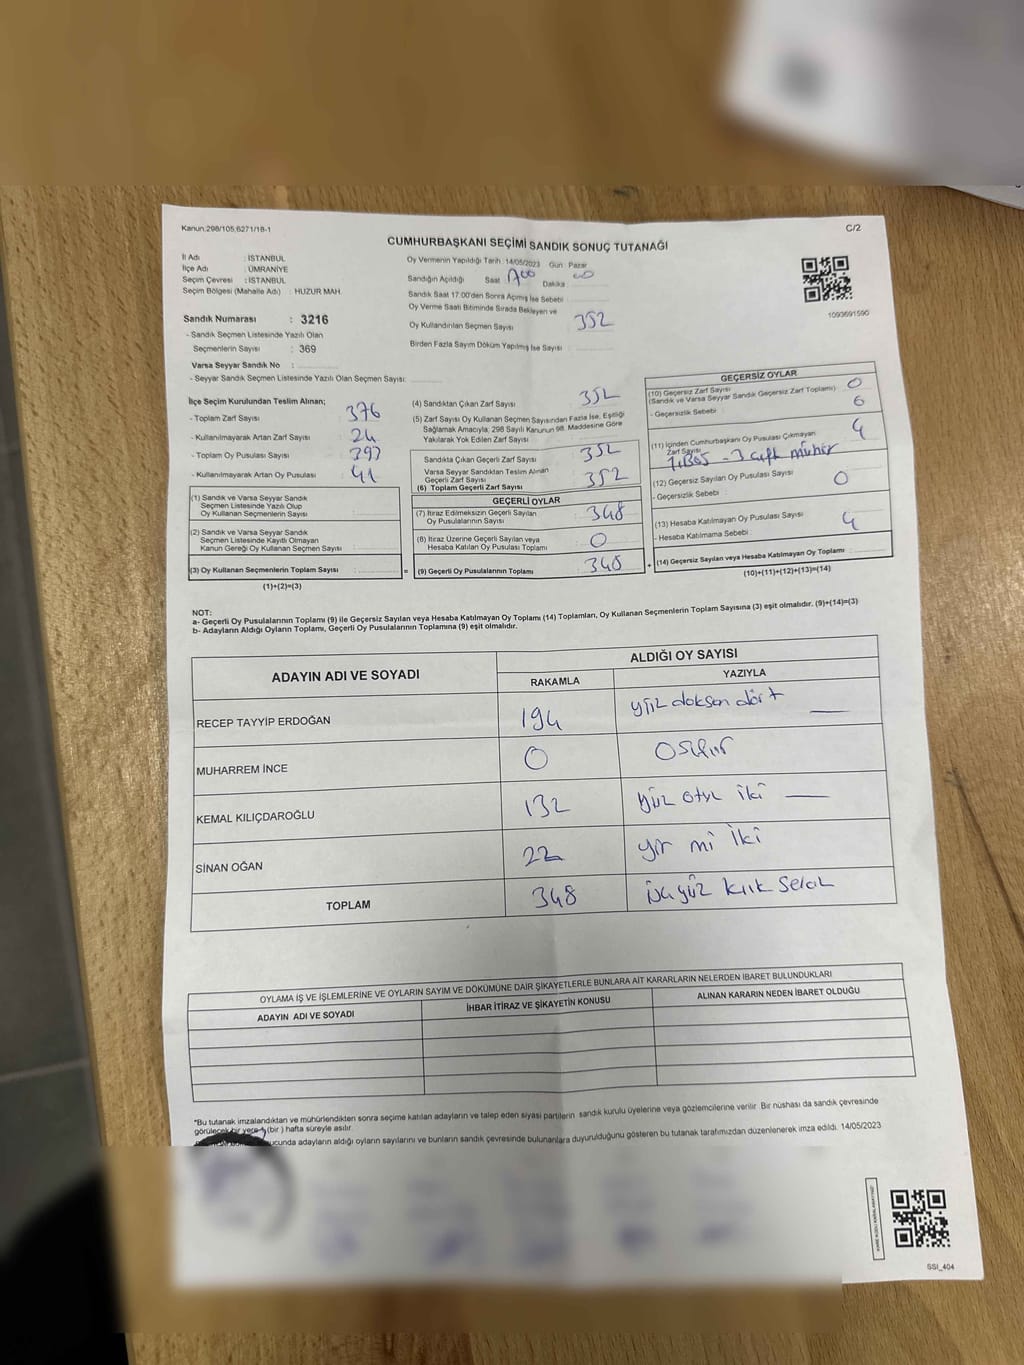 Kanun:298/105;6271/18-1
C/2
CUMHURBAŞKANI SEÇİMİ SANDIK SONUÇ TUTANAĞI
İl Adı : İSTANBUL
İlçe Adı : ÜMRANİYE
Seçim Çevresi : İSTANBUL
Seçim Bölgesi (Mahalle Adı) : HUZUR MAH.
Sandık Numarası : 3216
- Sandık Seçmen Listesinde Yazılı Olan
Seçmenlerin Sayısı : 369
Varsa Seyyar Sandık No :
- Seyyar Sandık Seçmen Listesinde Yazılı Olan Seçmen Sayısı:
Oy Vermenin Yapıldığı Tarih :14/05/2023 Gün : Pazar
Sandığın Açıldığı Saat 1700 Dakika 00
Sandık Saat 17:00'den Sonra Açımış İse Sebebi
Oy Verme Saati Bitiminde Sırada Bekleyen ve
Oy Kullandırılan Seçmen Sayısı 352
Birden Fazla Sayım Döküm Yapılmış İse Sayısı :
1093691590
İlçe Seçim Kurulundan Teslim Alınan;
- Toplam Zarf Sayısı 376
- Kullanılmayarak Artan Zarf Sayısı 24
- Toplam Oy Pusulası Sayısı 393
- Kullanılmayarak Artan Oy Pusulası 41
(1) Sandık ve Varsa Seyyar Sandık
Seçmen Listesinde Yazılı Olup
Oy Kullanan Seçmenlerin Sayısı :
(2) Sandık ve Varsa Seyyar Sandık
Seçmen Listesinde Kayıtlı Olmayan
Kanun Gereği Oy Kullanan Seçmen Sayısı :
(3) Oy Kullanan Seçmenlerin Toplam Sayısı :
(1)+(2)=(3)
(4) Sandıktan Çıkan Zarf Sayısı 352
(5) Zarf Sayısı Oy Kullanan Seçmen Sayısından Fazla İse, Eşitliği
Sağlamak Amacıyla; 298 Sayılı Kanunun 98. Maddesine Göre
Yakılarak Yok Edilen Zarf Sayısı
Sandıkta Çıkan Geçerli Zarf Sayısı 352
Varsa Seyyar Sandıktan Teslim Alınan
Geçerli Zarf Sayısı
(6) Toplam Geçerli Zarf Sayısı 352
GEÇERLİ OYLAR
(7) İtiraz Edilmeksizin Geçerli Sayılan
Oy Pusulalarının Sayısı : 348
(8) İtiraz Üzerine Geçerli Sayılan veya
Hesaba Katılan Oy Pusulası Toplamı : 0
= (9) Geçerli Oy Pusulalarının Toplamı : 348
GEÇERSİZ OYLAR
(10) Geçersiz Zarf Sayısı 0
(Sandık ve Varsa Seyyar Sandık Geçersiz Zarf Toplamı)
- Geçersizlik Sebebi :
(11) İçinden Cumhurbaşkanı Oy Pusulası Çıkmayan 4
Zarf Sayısı
- 3 çift mühür
(12) Geçersiz Sayılan Oy Pusulası Sayısı : 0
- Geçersizlik Sebebi :
(13) Hesaba Katılmayan Oy Pusulası Sayısı : 4
- Hesaba Katılmama Sebebi :
+ (14) Geçersiz Sayılan veya Hesaba Katılmayan Oy Toplamı :
(10)+(11)+(12)+(13)=(14)
NOT:
a- Geçerli Oy Pusulalarının Toplamı (9) ile Geçersiz Sayılan veya Hesaba Katılmayan Oy Toplamı (14) Toplamları, Oy Kullanan Seçmenlerin Toplam Sayısına (3) eşit olmalıdır. (9)+(14)=(3)
b- Adayların Aldığı Oyların Toplamı, Geçerli Oy Pusulalarının Toplamına (9) eşit olmalıdır.
ADAYIN ADI VE SOYADI ALDIĞI OY SAYISI
RAKAMLA YAZIYLA
RECEP TAYYİP ERDOĞAN 194 yüz doksan dört
MUHARREM İNCE 0 0 sıfır
KEMAL KILIÇDAROĞLU 132 yüz otuz iki
SİNAN OĞAN 22 yir mi iki
TOPLAM 348 üçyüz kırk sekiz
OYLAMA İŞ VE İŞLEMLERİNE VE OYLARIN SAYIM VE DÖKÜMÜNE DAİR ŞİKAYETLERLE BUNLARA AİT KARARLARIN NELERDEN İBARET BULUNDUKLARI
ADAYIN ADI VE SOYADI İHBAR İTİRAZ VE ŞİKAYETİN KONUSU ALINAN KARARIN NEDEN İBARET OLDUĞU
*Bu tutanak imzalandıktan ve mühürlendikten sonra seçime katılan adayların ve talep eden siyasi partilerin sandık kurulu üyelerine veya gözlemcilerine verilir. Bir nüshası da sandık çevresinde
görülecek bir yere 1 (bir) hafta süreyle asılır.
ucunda adayların aldığı oyların sayılarını ve bunların sandık çevresinde bulunanlara duyurulduğunu gösteren bu tutanak tarafımızdan düzenlenerek imza edildi. 14/05/2023
SSI_404